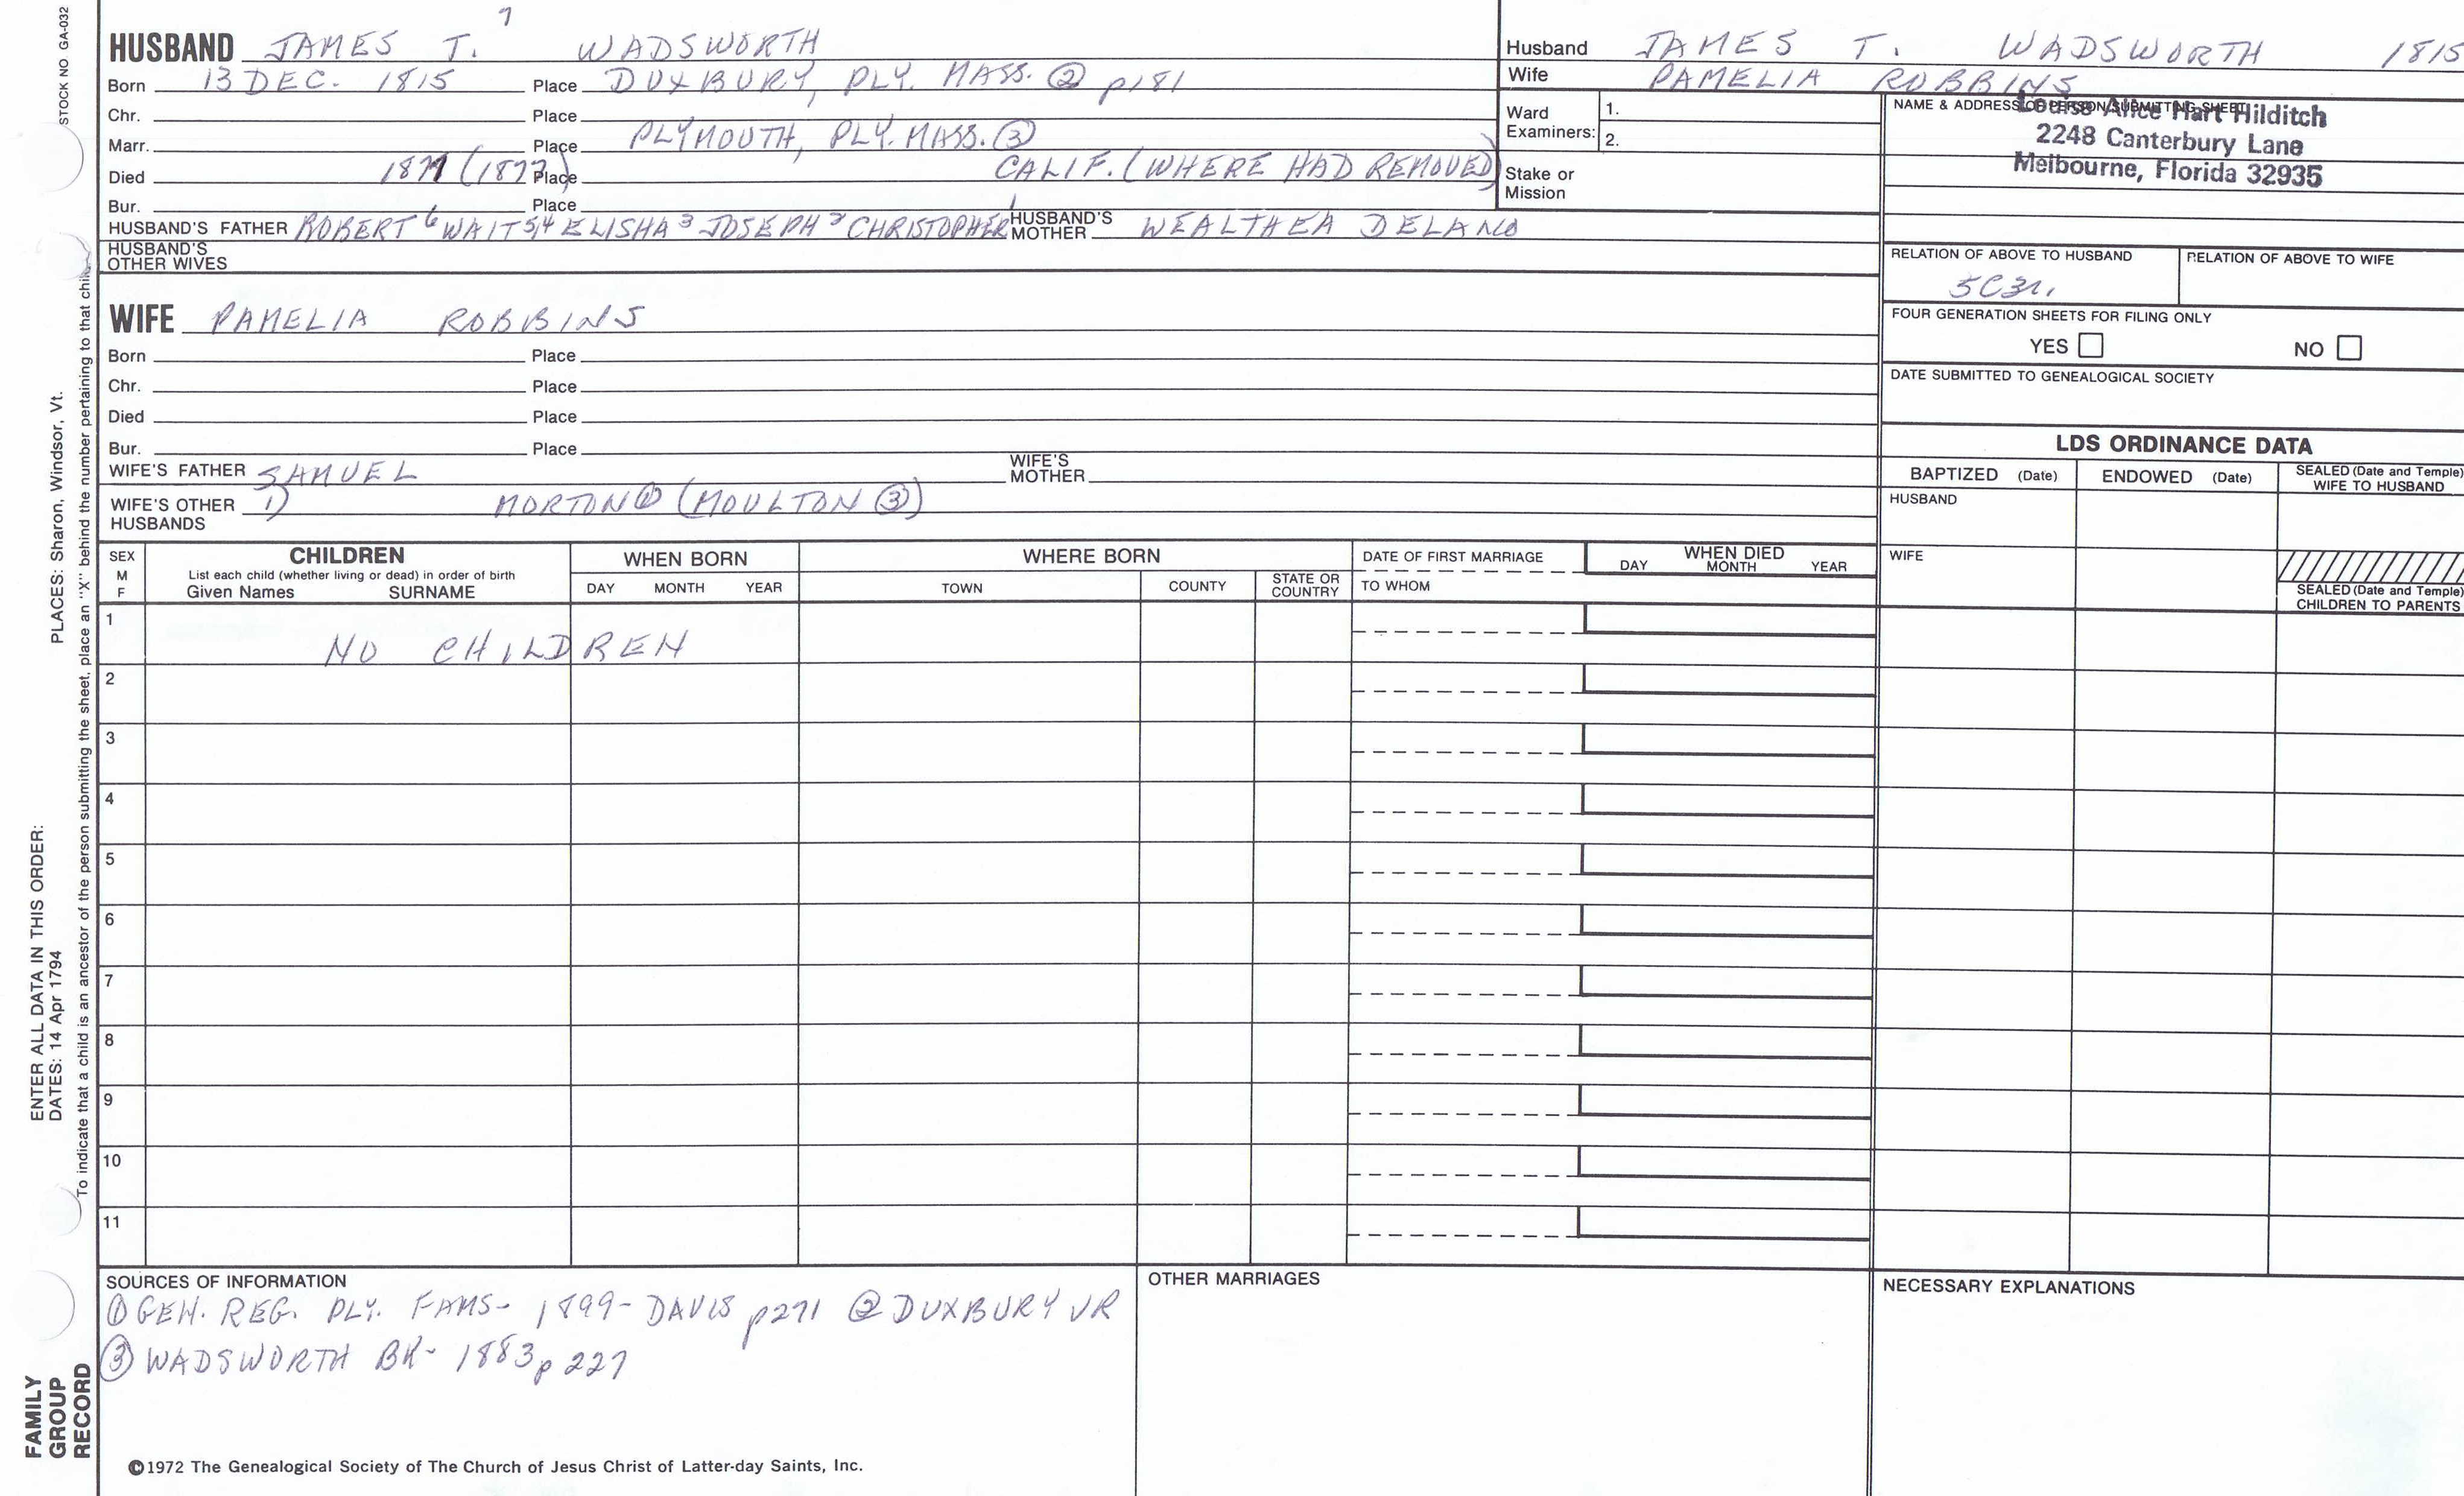 STOCK NO GA-032
7
HUSBAND JAMES T. WADSWORTH
Born 13 DEC. 1815 Place DUXBURY, PLY. MASS. ② p181
Chr. Place
Marr. Place PLYMOUTH, PLY. MASS. ③
Died (1877) Place CALIF. (WHERE HAD REMOVED)
Bur. Place
HUSBAND'S FATHER ROBERT 6 WAIT 5,4 ELISHA 3 JOSEPH 2 CHRISTOPHER 1 HUSBAND'S MOTHER WEALTHEA DELANO
HUSBAND'S OTHER WIVES
WIFE PAMELIA ROBBINS
Born Place
Chr. Place
Died Place
Bur. Place
WIFE'S FATHER SAMUEL WIFE'S MOTHER
WIFE'S OTHER HUSBANDS 1) MORTON ① (MOULTON ③)
Husband JAMES T. WADSWORTH 1815
Wife PAMELIA ROBBINS
Ward Examiners: 1.
2.
Stake or Mission
NAME & ADDRESS OF PERSON SUBMITTING SHEET
Louise Alice Hart Hilditch
2248 Canterbury Lane
Melbourne, Florida 32935
RELATION OF ABOVE TO HUSBAND RELATION OF ABOVE TO WIFE
5C3r.
FOUR GENERATION SHEETS FOR FILING ONLY
YES NO
DATE SUBMITTED TO GENEALOGICAL SOCIETY
LDS ORDINANCE DATA
BAPTIZED (Date) ENDOWED (Date) SEALED (Date and Temple) WIFE TO HUSBAND
HUSBAND
WIFE
SEALED (Date and Temple) CHILDREN TO PARENTS
SEX M F
CHILDREN
List each child (whether living or dead) in order of birth
Given Names SURNAME
WHEN BORN
DAY MONTH YEAR
WHERE BORN
TOWN COUNTY STATE OR COUNTRY
DATE OF FIRST MARRIAGE
TO WHOM
WHEN DIED
DAY MONTH YEAR
1 NO CHILDREN
2
3
4
5
6
7
8
9
10
11
SOURCES OF INFORMATION
① GEN. REG. PLY. FAMS- 1899- DAVIS p271 ② DUXBURY VR
③ WADSWORTH BK- 1883 p 227
OTHER MARRIAGES
NECESSARY EXPLANATIONS
©1972 The Genealogical Society of The Church of Jesus Christ of Latter-day Saints, Inc.
FAMILY GROUP RECORD
ENTER ALL DATA IN THIS ORDER:
DATES: 14 Apr 1794 PLACES: Sharon, Windsor, Vt.
To indicate that a child is an ancestor of the person submitting the sheet, place an "X" behind the number pertaining to that child.